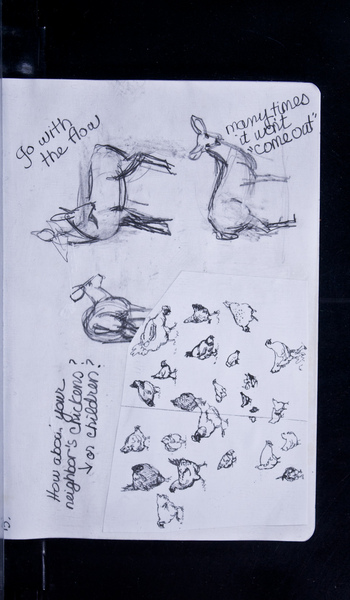 Go with
the flow
many times
it won't
"come out"
How about your
neighbor's chickens?
↓ or children?